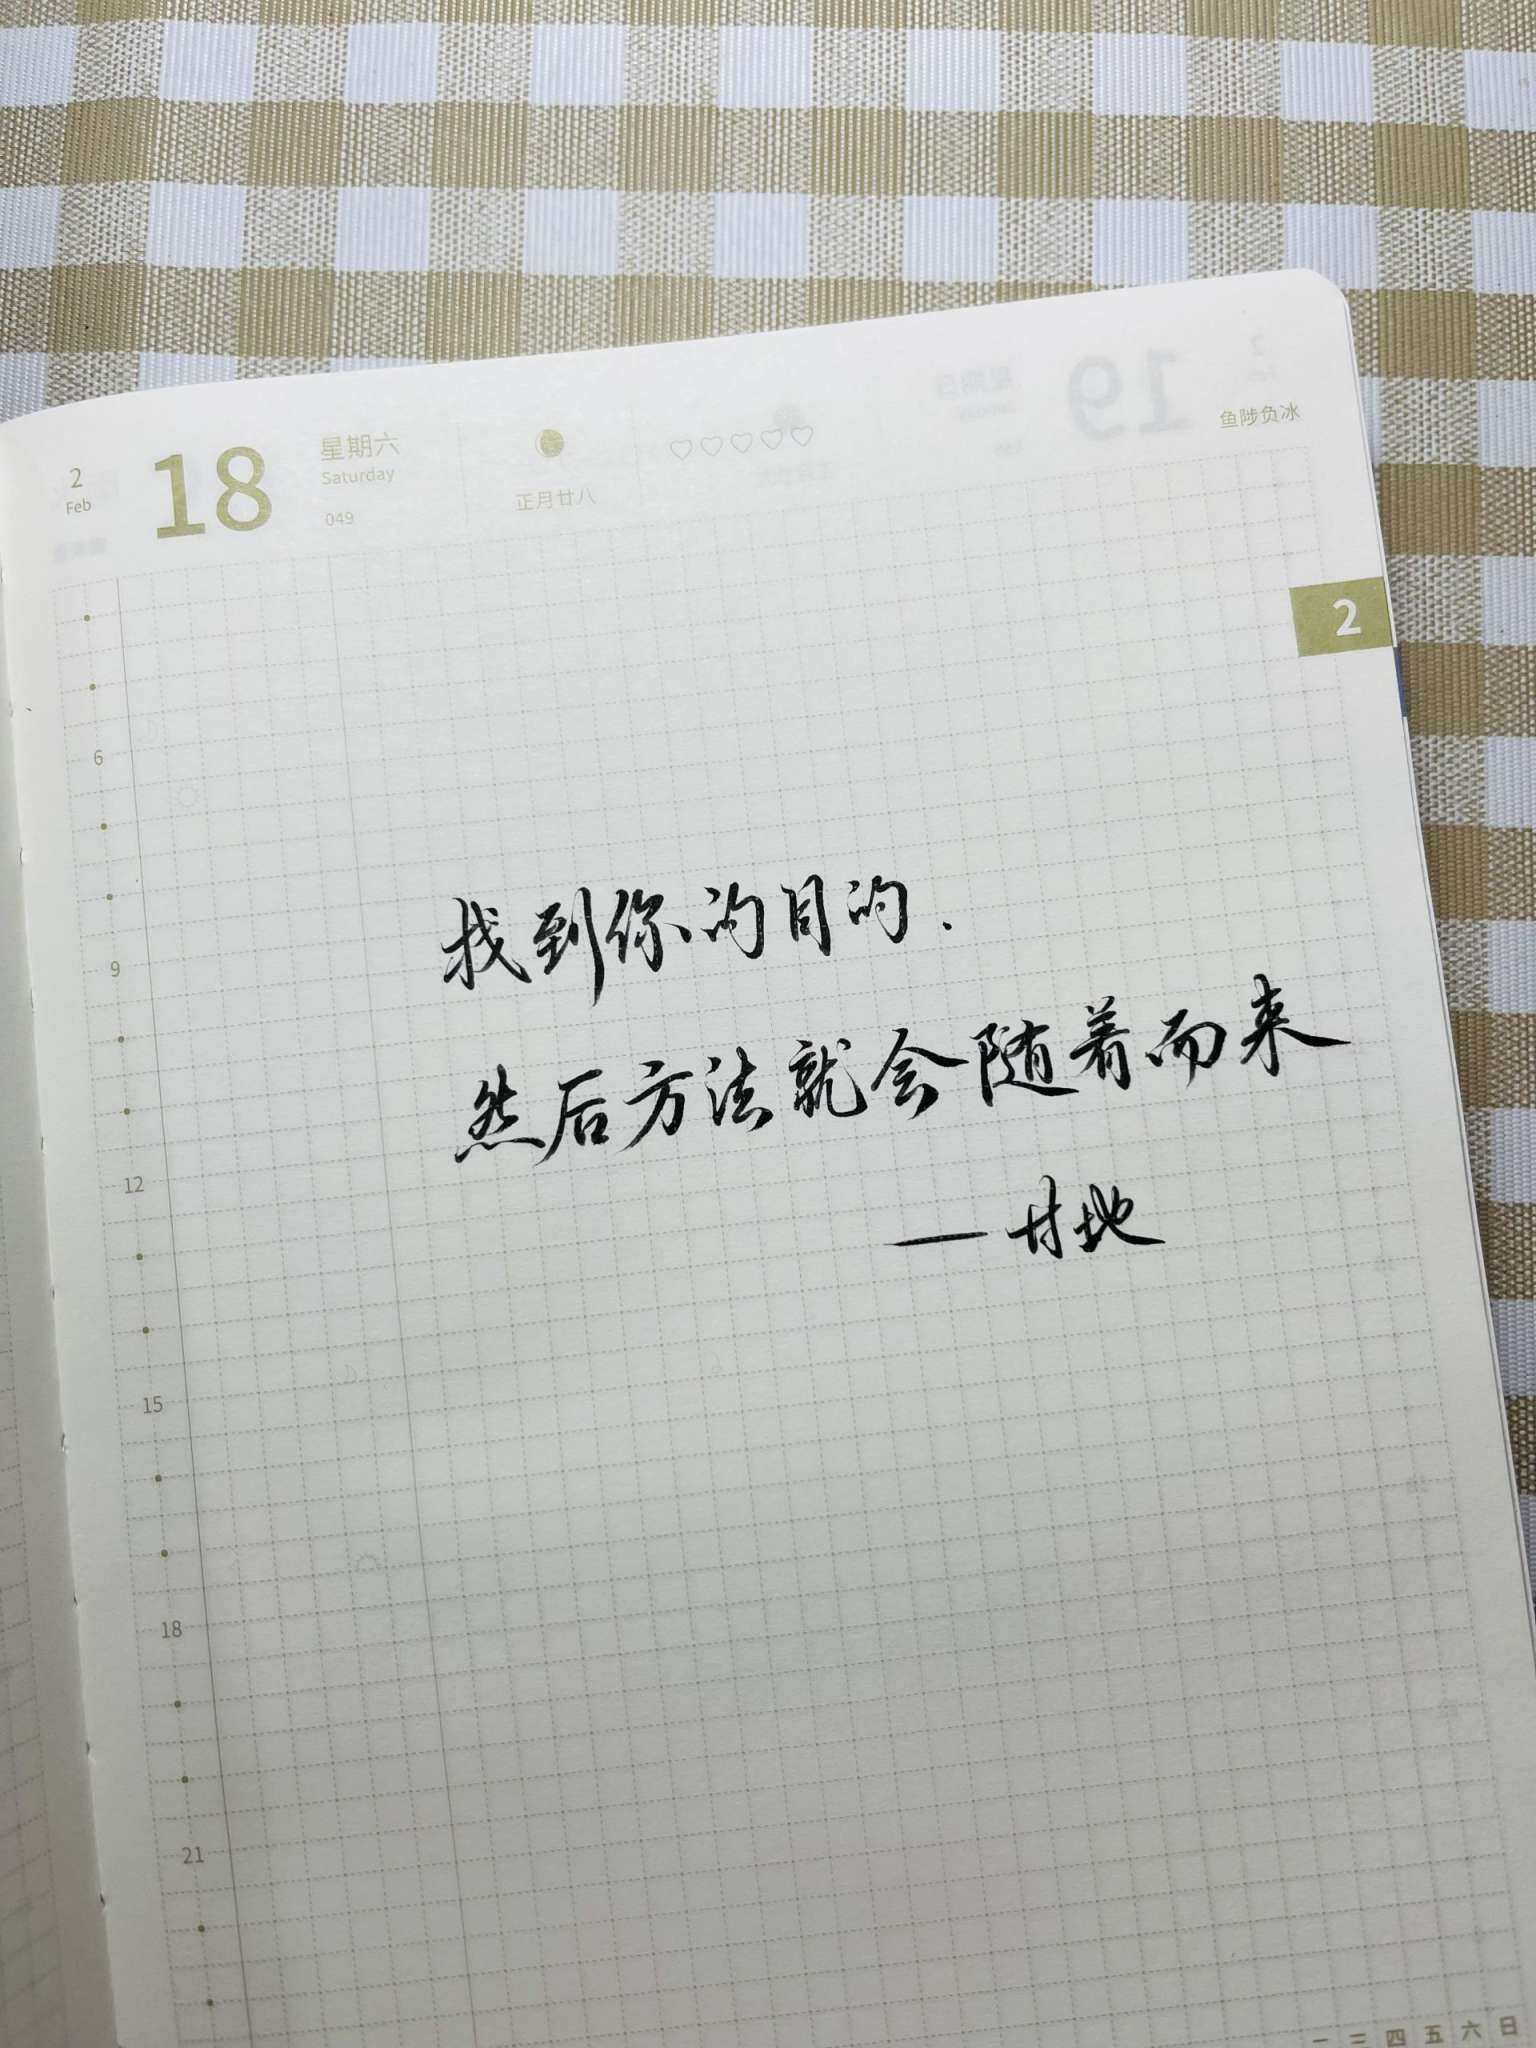 2
Feb
18
星期六
Saturday
049
正月廿八
鱼陟负冰
2
找到你的目的.
然后方法就会随着而来
—甘地
6
9
12
15
18
21
一 二 四 五 六 日